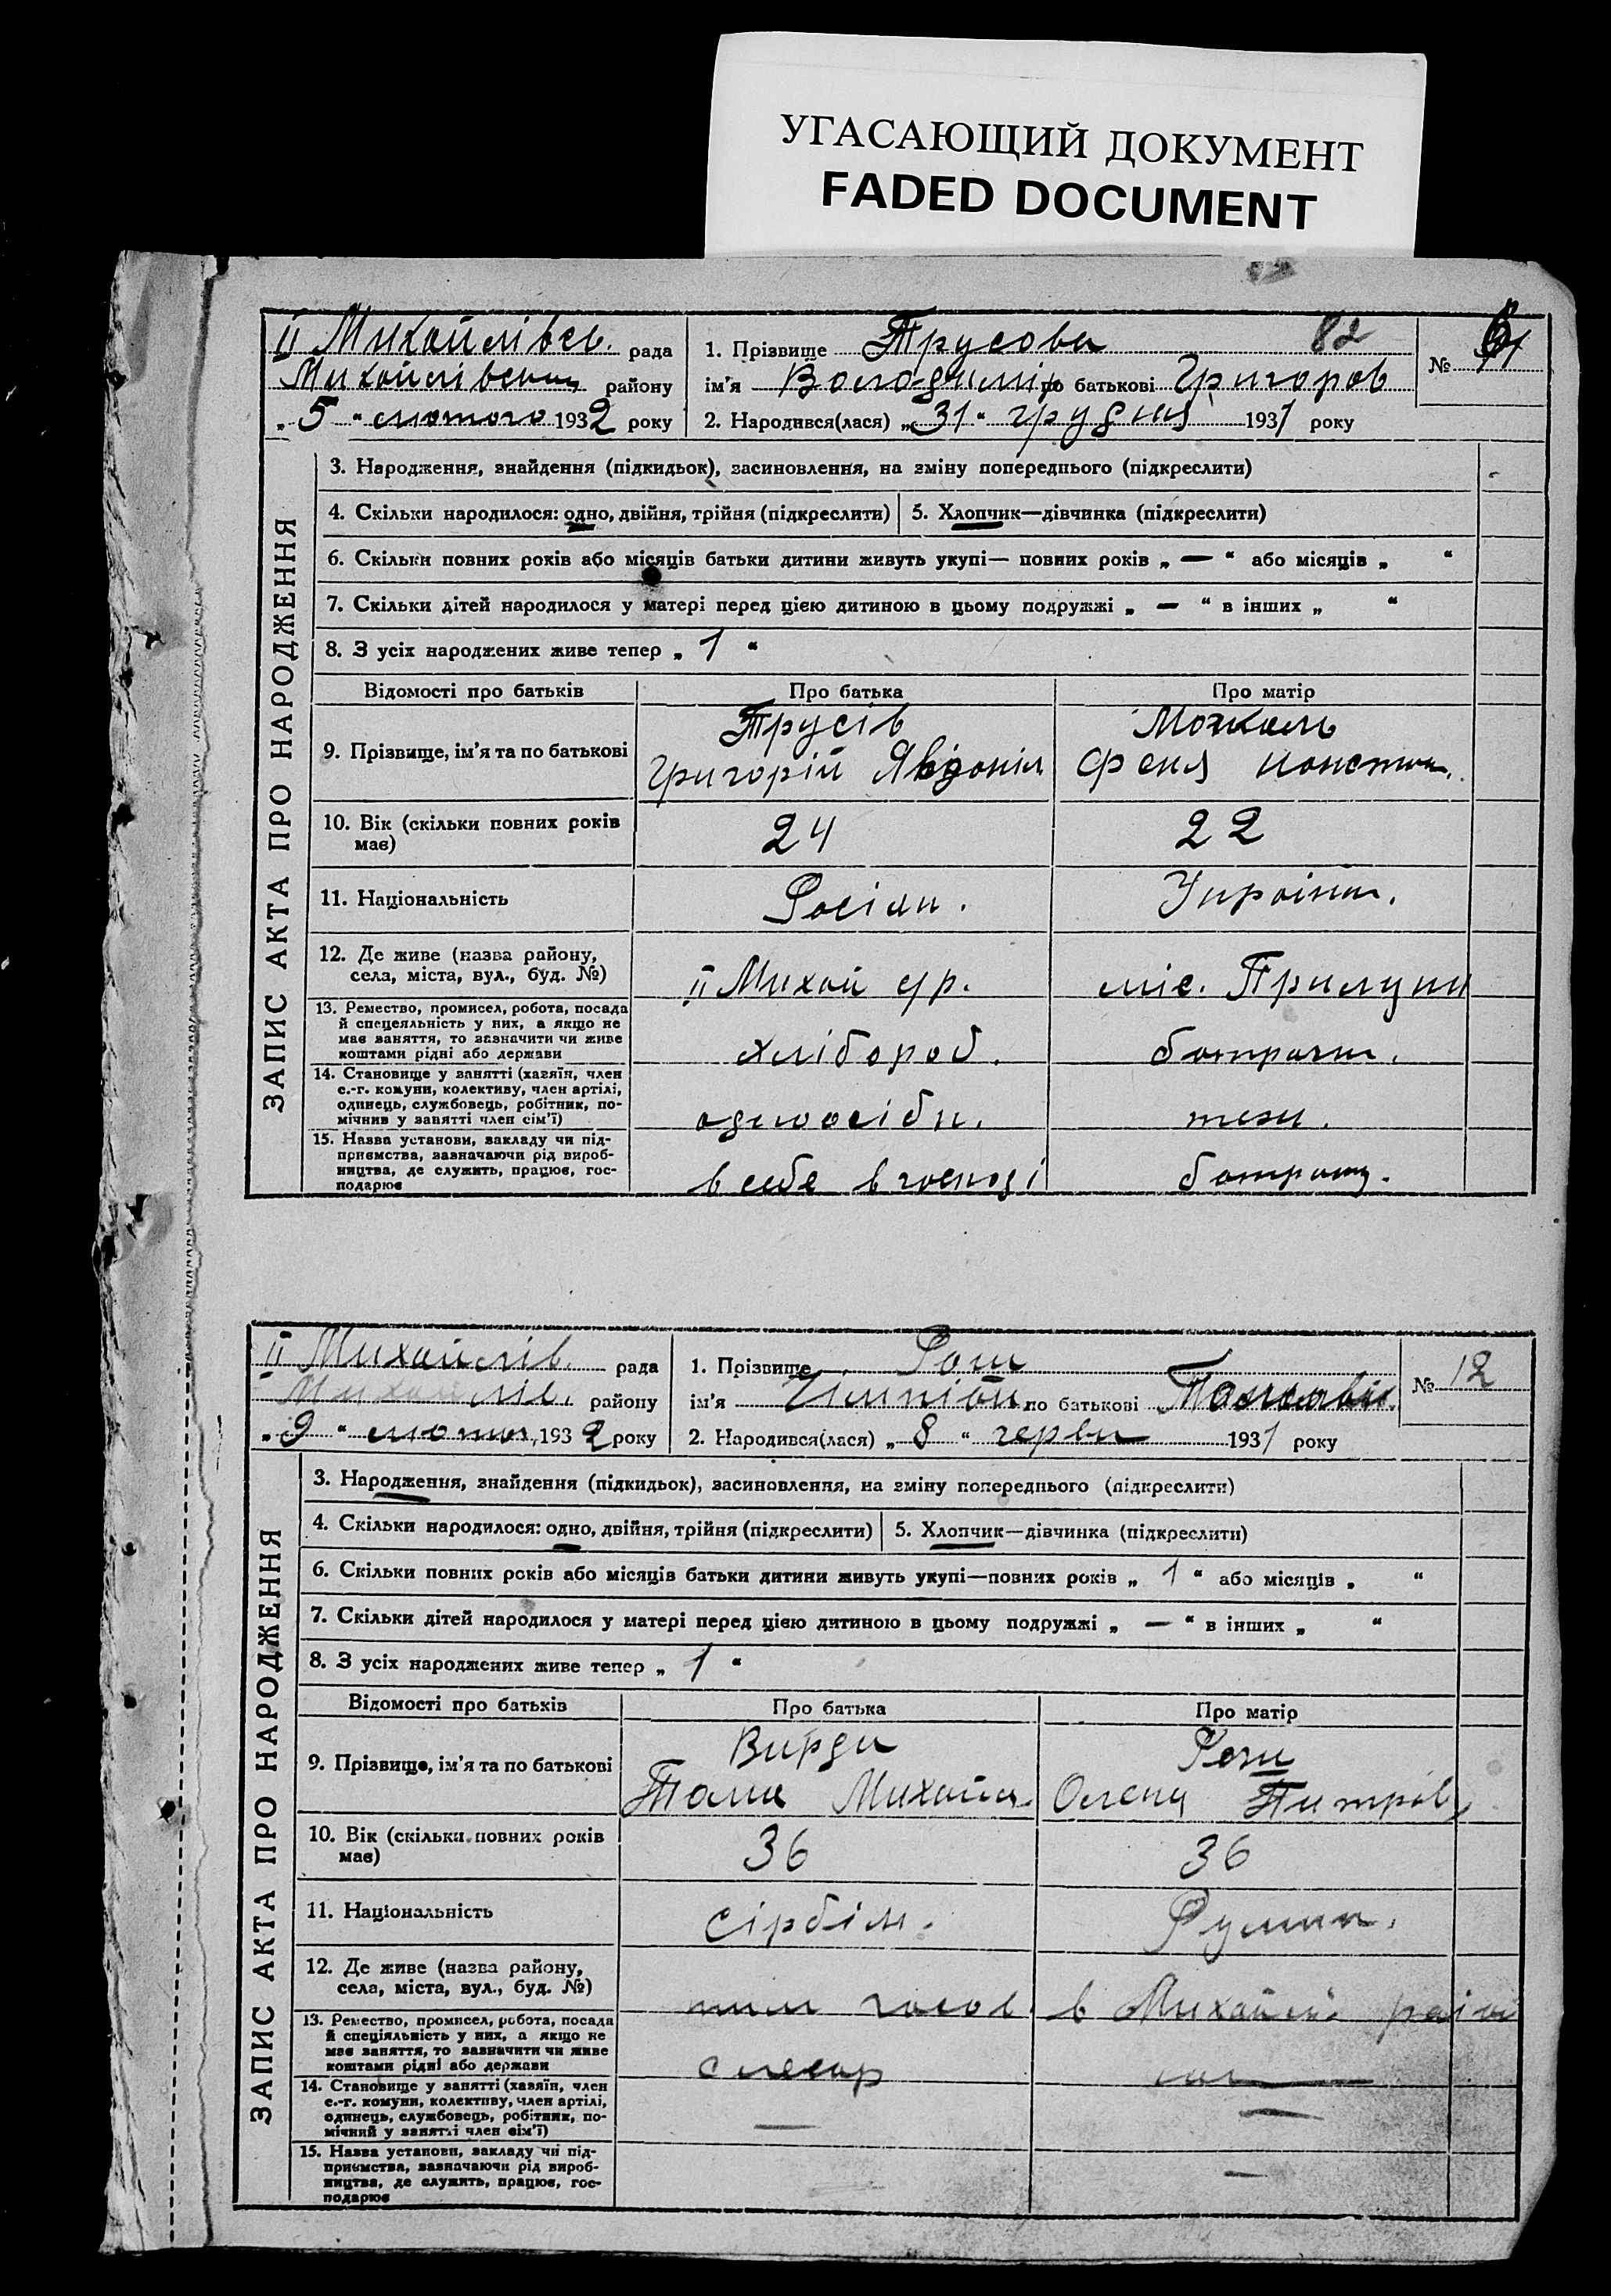 УГАСАЮЩИЙ ДОКУМЕНТ
FADED DOCUMENT
II Михайлівсь. рада
Михайлівськ, району
„5“ лютого 1932 року
1. Прізвище Трусова 82
ім'я Володимір по батькові Григоров
2. Народився(лася) „31“ грудня 1931 року
№
ЗАПИС АКТА ПРО НАРОДЖЕННЯ
3. Народження, знайдення (підкидьок), засиновлення, на зміну попереднього (підкреслити)
4. Скільки народилося: одно, двійня, трійня (підкреслити) 5. Хлопчик—дівчинка (підкреслити)
6. Скільки повних років або місяців батьки дитини живуть укупі— повних років „ — “ або місяців „ “
7. Скільки дітей народилося у матері перед цією дитиною в цьому подружжі „ — “ в інших „ “
8. З усіх народжених живе тепер „ 1 “
Відомості про батьків Про батька Про матір
9. Прізвище, ім'я та по батькові
Трусів
Григорій
Можаль
Феня Констан.
10. Вік (скільки повних років
має)
24 22
11. Національність
Росіян. Украінк.
12. Де живе (назва району,
села, міста, вул., буд. №)
II Михай с/р. міс. Прилуки
13. Ремество, промисел, робота, посада
й спецеяльність у них, а якщо не
має заняття, то зазначити чи живе
коштами рідні або держави
хлібороб. батрачк.
14. Становище у занятті (хазяїн, член
с.-г. комуни, колективу, член артілі,
одинець, службовець, робітник, по-
мічник у занятті член сім'ї)
одноосібн. теж.
15. Назва установи, закладу чи під-
приємства, зазначаючи рід вироб-
ництва, де служить, працює, гос-
подарює
в себе в господі
II Михайлів. рада
Михайлів. району
„9“ лютог 1932 року
1. Прізвище Рош
ім'я по батькові
2. Народився(лася) „8“ червн 1931 року
№ 12
ЗАПИС АКТА ПРО НАРОДЖЕННЯ
3. Народження, знайдення (підкидьок), засиновлення, на зміну попереднього (підкреслити)
4. Скільки народилося: одно, двійня, трійня (підкреслити) 5. Хлопчик—дівчинка (підкреслити)
6. Скільки повних років або місяців батьки дитини живуть укупі—повних років „ 1 “ або місяців „ “
7. Скільки дітей народилося у матері перед цією дитиною в цьому подружжі „ — “ в інших „ “
8. З усіх народжених живе тепер „ 1 “
Відомості про батьків Про батька Про матір
9. Прізвище, ім'я та по батькові
Тома Михайл.
Олена Питрів
10. Вік (скільки повних років
має)
36 36
11. Національність
Сірбіян. Румин.
12. Де живе (назва району,
села, міста, вул., буд. №)
тим часов. в Михайлі. районі
13. Ремество, промисел, робота, посада
й спеціяльність у них, а якщо не
має заняття, то зазначити чи живе
коштами рідні або держави
слесар
14. Становище у занятті (хазяїн, член
с.-г. комуни, колективу, член артілі,
одинець, службовець, робітник, по-
мічний у занятті член сім'ї)
— —
15. Назва установи, закладу чи під-
приємства, зазначаючи рід вироб-
ництва, де служить, працює, гос-
подарює
—